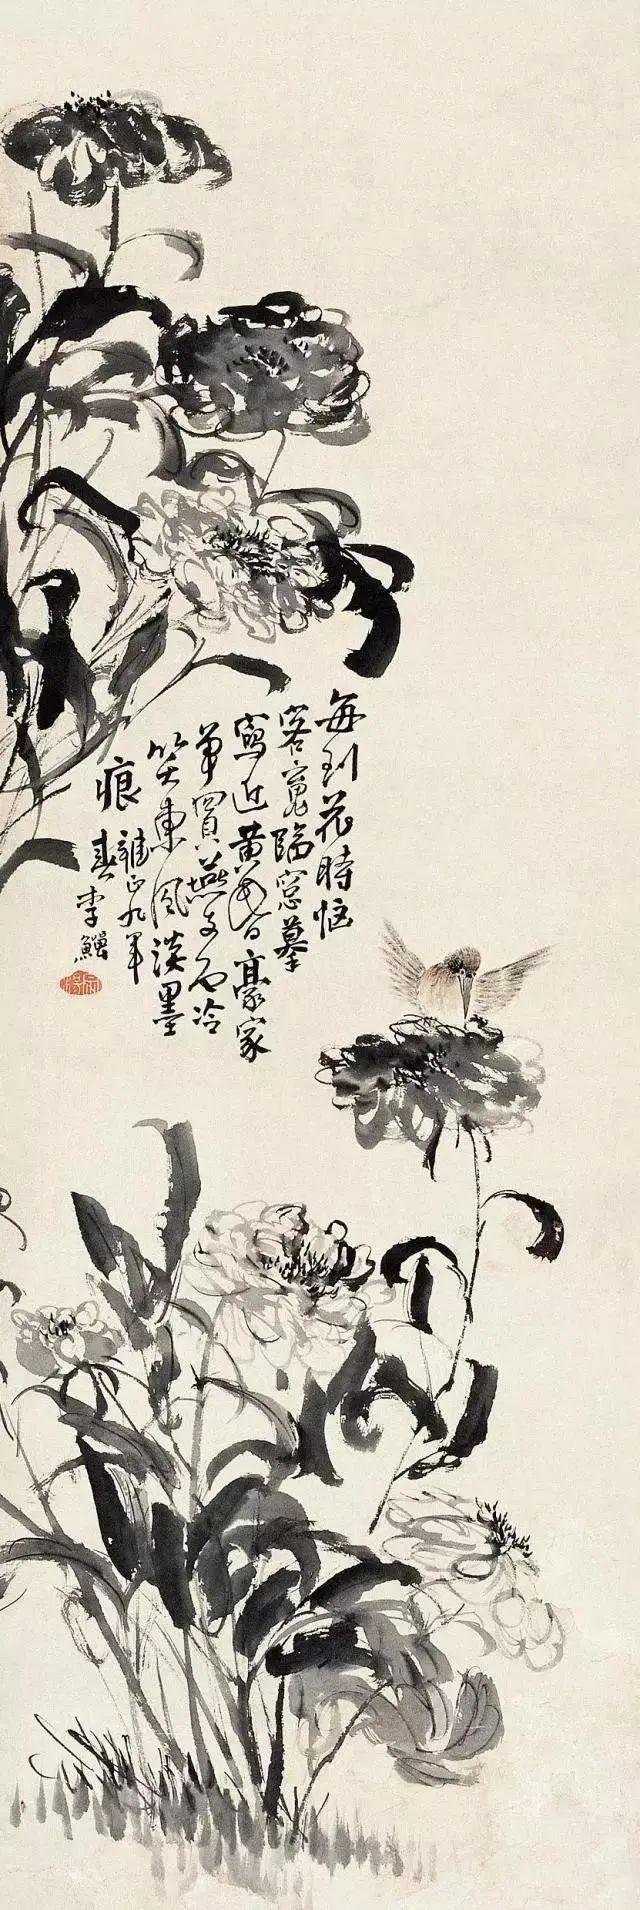 每到花時惱
客䰟臨窓摹
寫近黄昏豪家
爭買燕支冷
笑東風淡墨
痕
雍正九年
春李鱓